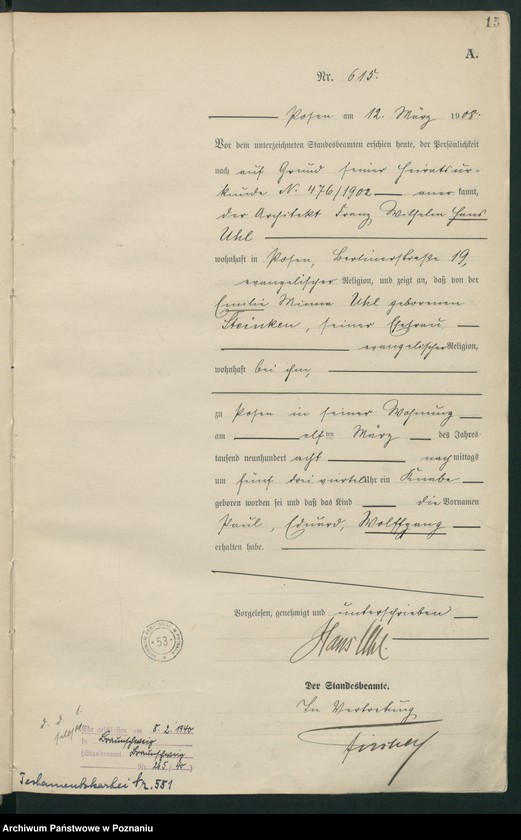 15
A.
Nr. 615.
Posen am 12. März 1908.
Vor dem unterzeichneten Standesbeamten erschien heute, der Persönlichkeit
nach auf Grund seiner Heiratsur-
kunde N. 476/1902 aner kannt,
der Architekt Franz Wilhelm Hans
Uhl
wohnhaft in Posen, Berlinerstraße 19,
evangelischer Religion, und zeigt an, daß von der
Emilie Minna Uhl geborenen
Steinken, seiner Ehefrau
evangelischer Religion,
wohnhaft bei ihm,
zu Posen in seiner Wohnung
am elften März des Jahres
tausend neunhundert acht nach mittags
um fünf drei viertel Uhr ein Knabe
geboren worden sei und daß das Kind die Vornamen
Paul, Eduard, Wolffgang
erhalten habe.
Vorgelesen, genehmigt und unterschrieben
Hans Uhl.
Der Standesbeamte.
In Vertretung
53
Ehe geschlossen am 8. 2. 1940
in Braunschweig
(Standesamt Braunschweig
Nr. 265/40)
Testamentskartei Nr. 551
Archiwum Państwowe w Poznaniu